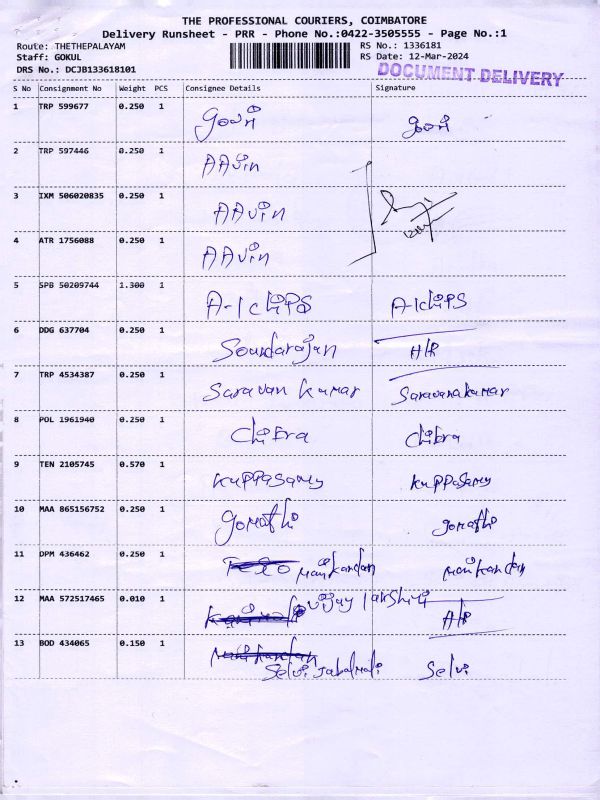 THE PROFESSIONAL COURIERS, COIMBATORE
Delivery Runsheet - PRR - Phone No.:0422-3505555 - Page No.:1
Route: THETHEPALAYAM RS No.: 1336181
Staff: GOKUL RS Date: 12-Mar-2024
DRS No.: DCJB133618101 DOCUMENT DELIVERY
S No Consignment No Weight PCS Consignee Details Signature
1 TRP 599677 0.250 1 gowri gowri
2 TRP 597446 0.250 1 AAvin
3 IXM 506020835 0.250 1 AAvin
4 ATR 1756088 0.250 1 AAvin
5 SPB 50209744 1.300 1 A-1 chiPS A-1chiPS
6 DDG 637704 0.250 1 Soundarajan
7 TRP 4534387 0.250 1 Saravan kumar Saravanakumar
8 POL 1961940 0.250 1 chitra chitra
9 TEN 2105745 0.570 1 kuppasamy kuppasamy
10 MAA 865156752 0.250 1 gomathi gomathi
11 DPM 436462 0.250 1 manikandan manikandan
12 MAA 572517465 0.010 1 vijay lakshmi
13 BOD 434065 0.150 1
Selvi Selvi